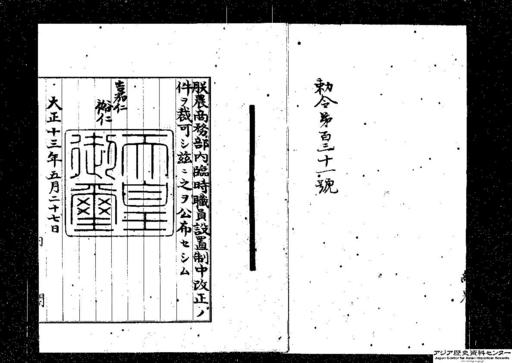 勅令第百三十一號
朕農商務部內臨時職員設置制中改正ノ
件ヲ裁可シ茲ニ之ヲ公布セシム
嘉仁
裕仁
天皇
御璽
大正十三年五月二十七日
アジア歴史資料センター
Japan Center for Asian Historical Records